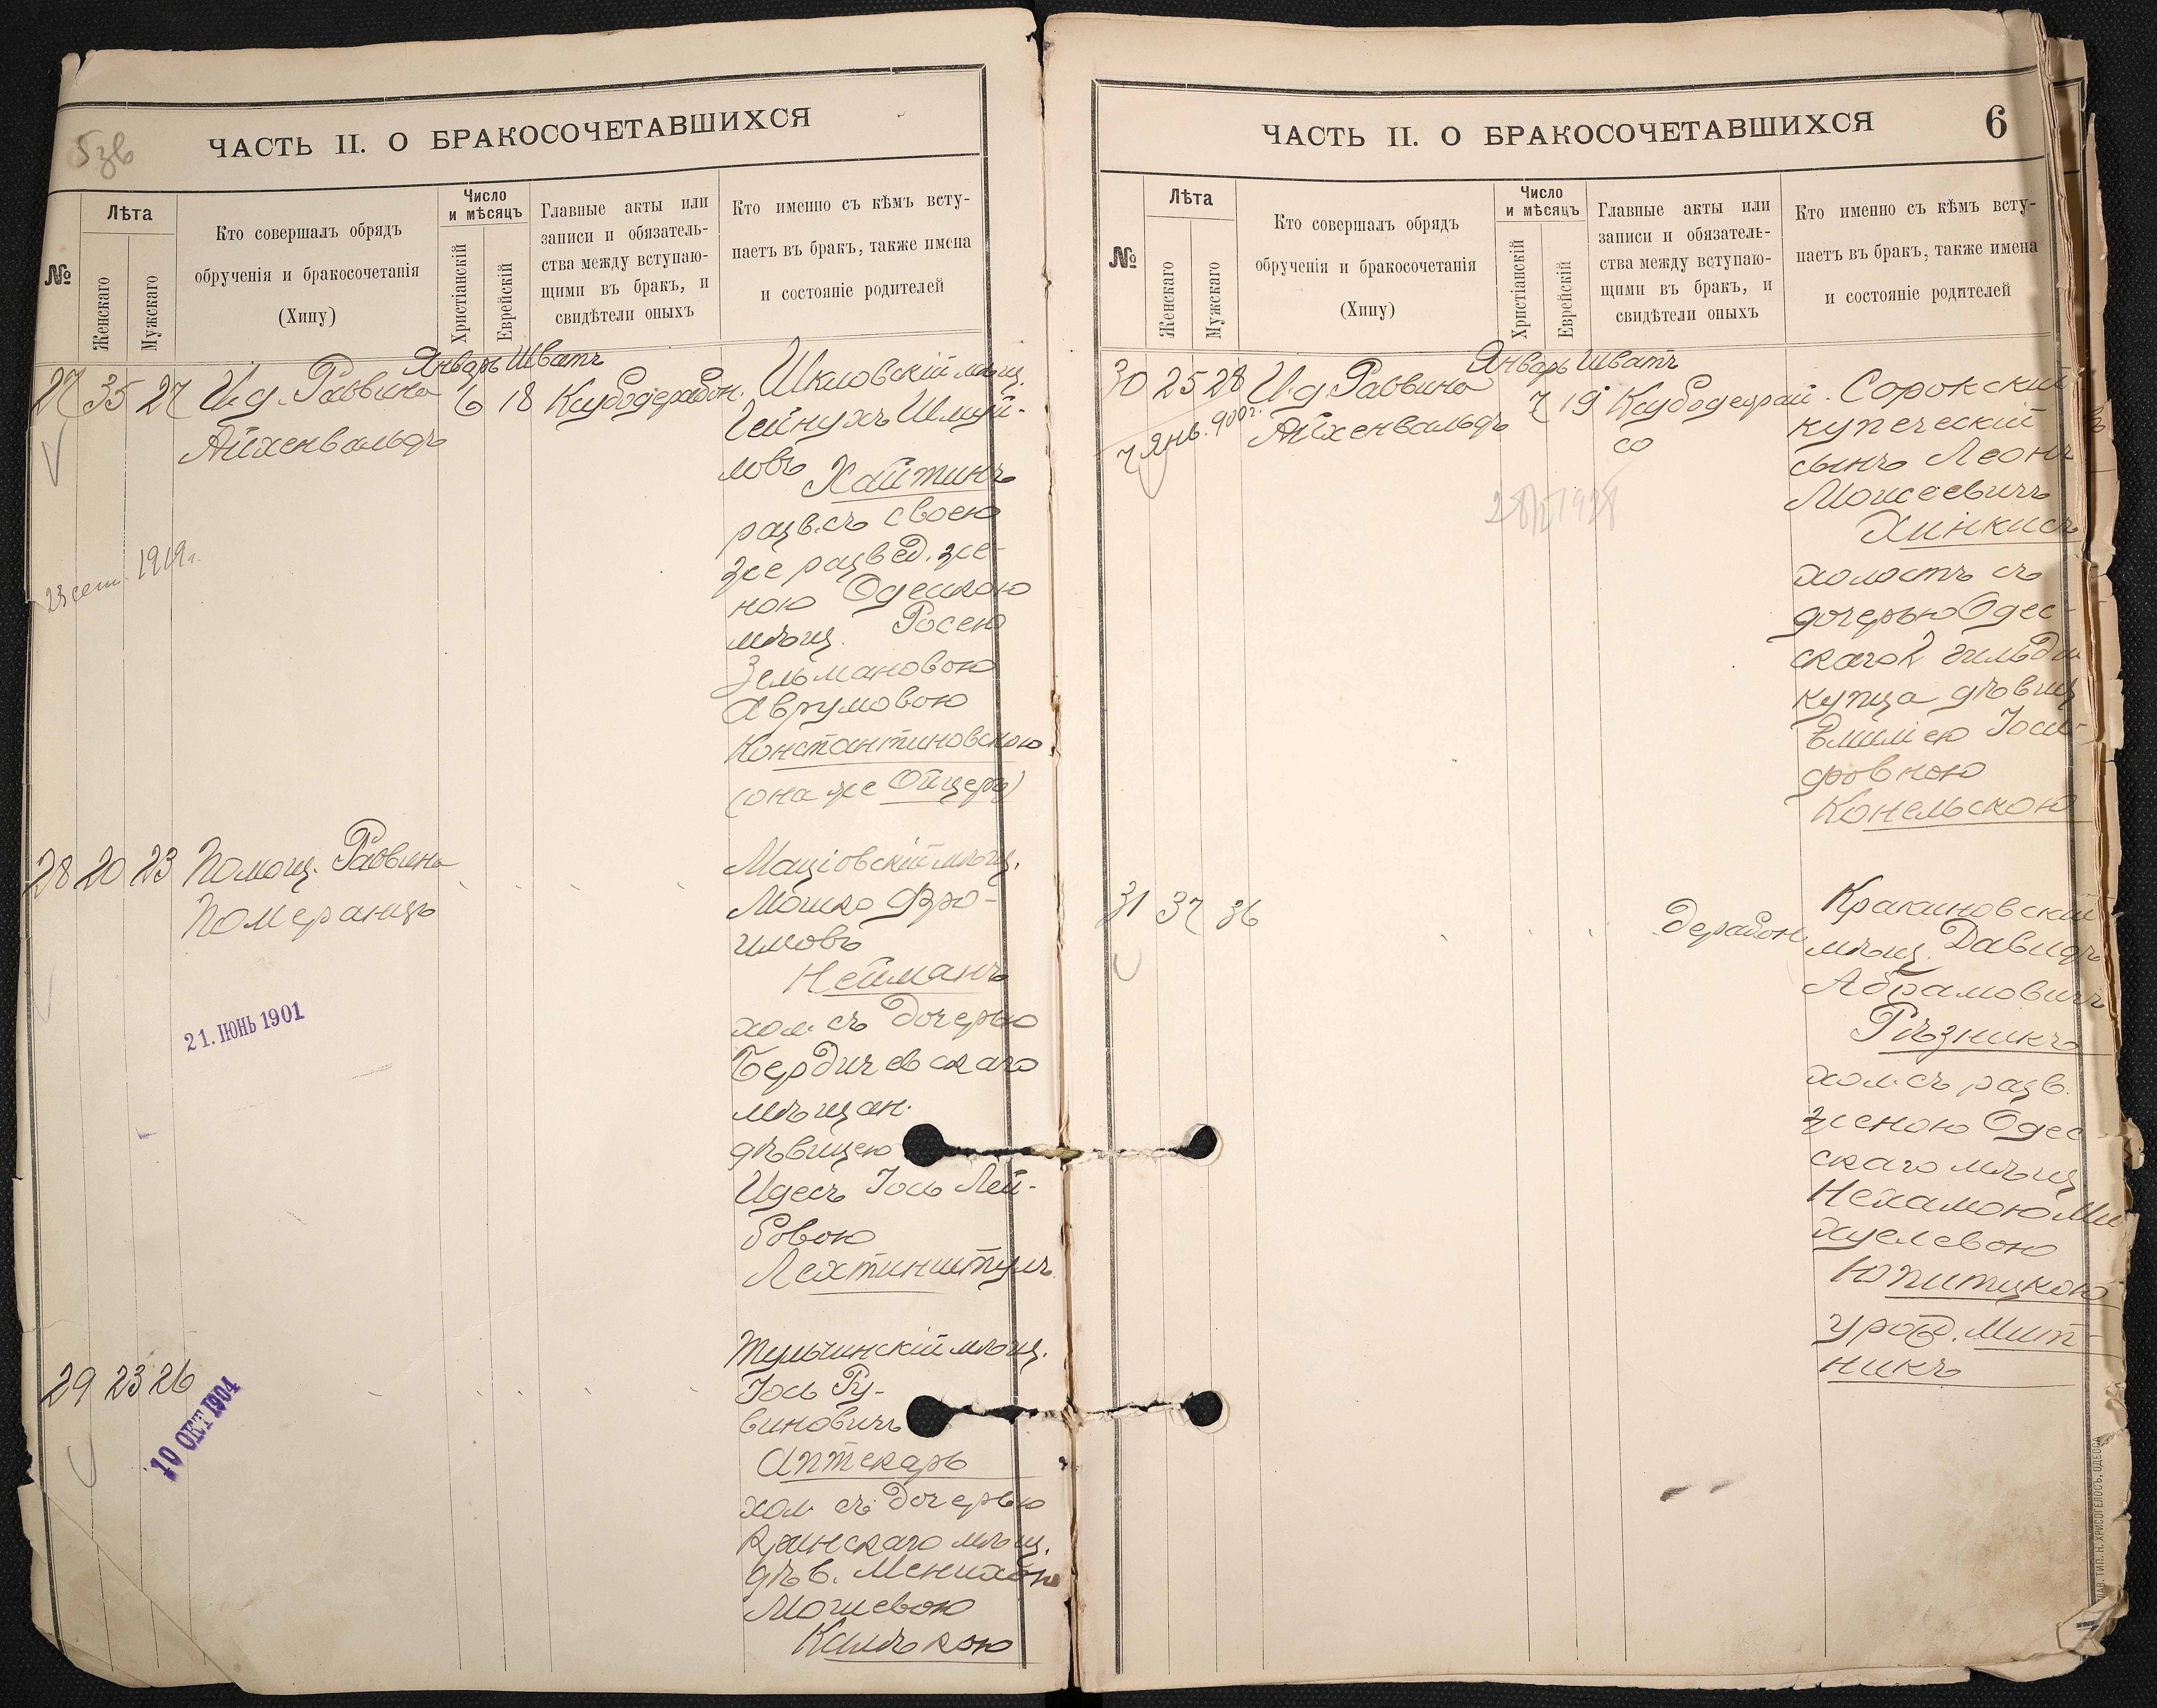 5 зв
ЧАСТЬ II. О БРАКОСОЧЕТАВШИХСЯ
№
Лѣта
Женскаго
Мужскаго
Кто совершалъ обрядъ
обрученія и бракосочетанія
(Хипу)
Число
и мѣсяцъ
Христіанскій
Еврейскій
Главные акты или
записи и обязатель-
ства между вступаю-
щими въ бракъ, и
свидѣтели оныхъ
Кто именно съ кѣмъ всту-
паетъ въ бракъ, также имена
и состояніе родителей
Январь Шватъ
27 35 27 И.д. Раввина 6 18
Айхенвальдъ
Шкловскій мѣщ.
Гейнухъ Шмуй-
ловъ Хайтинъ
разв. съ своею
же развед. же-
ною Одесскою
мѣщ. Росею
Зельмановою
Аврумовою
Константиновскою
(она же Ойцеръ)
23 сент. 1919г.
28 20 23 Помощ. Раввина
Померанцъ
Маціовскій мѣщ.
Мошко Фро-
имовъ
Нейманъ
хол. съ дочерью
Бердичевскаго
мѣщан.
дѣвицею
Идесъ Іось Лей-
бовою
Лехтинштулъ
21. ІЮНЬ 1901
29 23 26
10 ОКТ 1904
Тульчинскій мѣщ.
Іось Ру-
виновичъ
Аптекарь
хол. съ дочерью
мѣщ.
дѣв.
Мошевою
ЧАСТЬ II. О БРАКОСОЧЕТАВШИХСЯ
6
№
Лѣта
Женскаго
Мужскаго
Кто совершалъ обрядъ
обрученія и бракосочетанія
(Хипу)
Число
и мѣсяцъ
Христіанскій
Еврейскій
Главные акты или
записи и обязатель-
ства между вступаю-
щими въ бракъ, и
свидѣтели оныхъ
Кто именно съ кѣмъ всту-
паетъ въ бракъ, также имена
и состояніе родителей
Январь Шватъ
30 25 28 И.д. Раввина 7 19
Айхенвальдъ
7 Янв. 900г.
Сорокскій
купеческій
сынъ Леонъ
Моисеевичъ
Хинкисъ
холостъ съ
дочерью Одес-
скаго 2 гильдіи
купца дѣвиц
Эмиліею Іоси-
фовною
Конельскою
31 37 36
Давидъ
мѣщ.
Абрамовичъ
Рѣзникъ
хол. съ разв.
женою Одес-
скаго мѣщ
Нехамою Ми
хуелевою
Юпитцкою
урожд. Мит-
никъ
ТИП. Н. ХРИСОГЕЛОСЪ, ОДЕССА